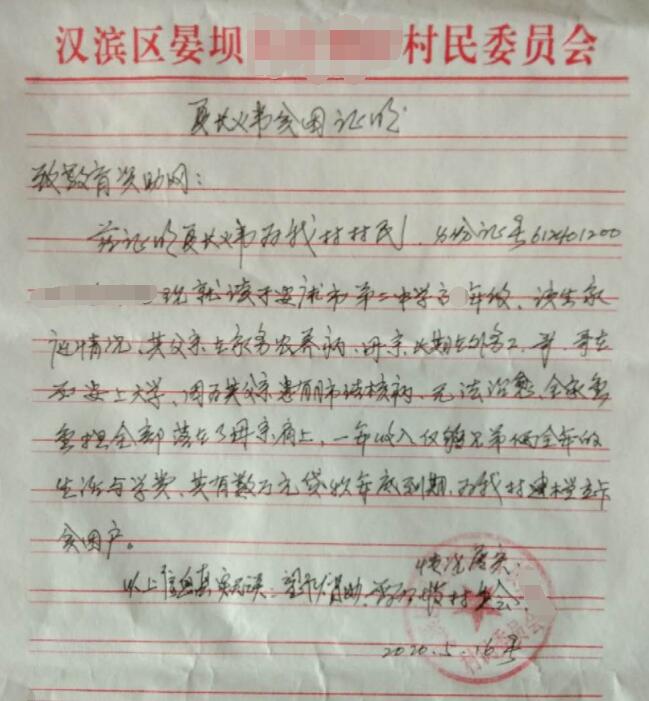 汉滨区晏坝 村民委员会
夏长义韦贫困证明
致教育资助网：
兹证明夏长义韦为我村村民，身份证号612401200
现就读于安康市第二中学高 年级，该生家
庭情况，其父亲在家务农养病，母亲长期在外务工，哥哥在
西安上大学，因为其父亲患有肺结核病，无法治愈，全家重
重担全部落在了母亲肩上，一年收入仅维兄弟俩全年的
生活与学费，共有数万元贷款年底到期，为我村建档立卡
贫困户。
情况属实
以上信息真实无误，望予以资助，
2020.5.16号
村民委员会